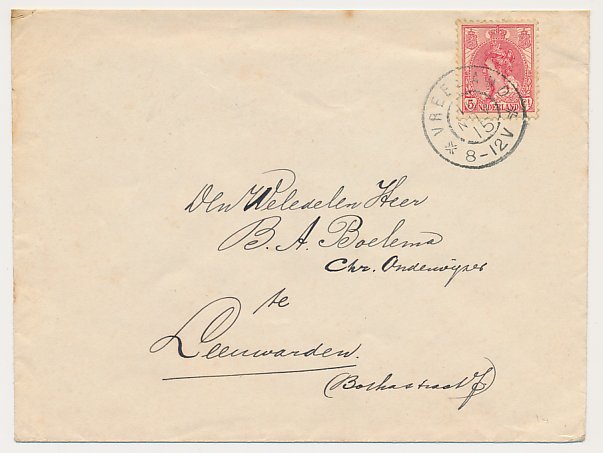 5 NEDERLAND 5
VREELAND
15
8-12V
Den Weledelen Heer
B. A. Boelema
Chr. Onderwijzer
te
Leeuwarden.
(Bothastraat